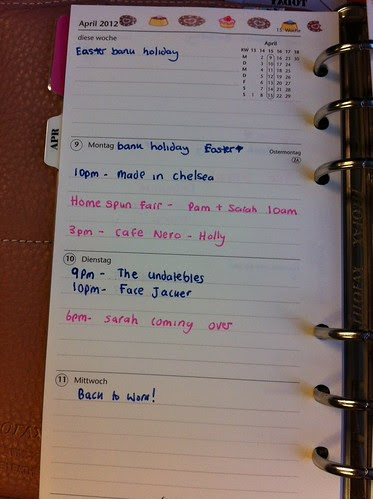 April 2012
15. Woche
diese woche
Easter bank holiday
April
KW 13 14 15 16 17 18
M 2 9 16 23 30
D 3 10 17 24
M 4 11 18 25
D 5 12 19 26
F 6 13 20 27
S 7 14 21 28
S 1 8 15 22 29
APR
9 Montag bank holiday Easter
Ostermontag
10pm - made in chelsea
Home spun Fair - Pam + Sarah 10am
3pm - Cafe Nero - Holly
10 Dienstag
9pm - The undatebles
10pm - Face Jacker
6pm - sarah coming over
11 Mittwoch
Back to work!
FILOFAX